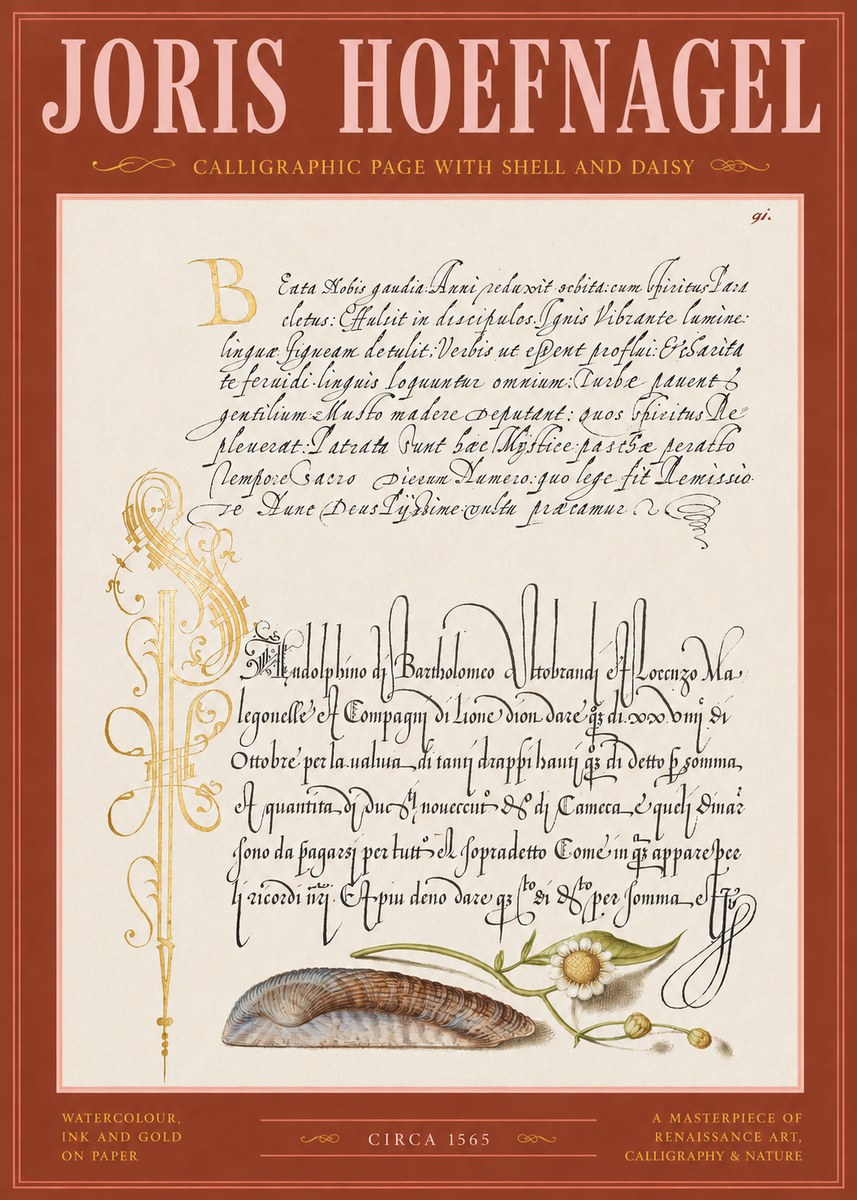 JORIS HOEFNAGEL
CALLIGRAPHIC PAGE WITH SHELL AND DAISY
91.
Beata Nobis gaudia: Anni reduxit orbita: cum spiritus Para
cletus: Effulsit in discipulos. Ignis Vibrante lumine:
linguæ figuram detulit: Verbis ut essent proflui: Et Charita
te fervidi. linguis loquuntur omnium: Turbæ pavent
gentilium: Musto madere Deputant: quos spiritus Re
pleverat: Patrata Sunt hæc Mystice: paschæ peracto
tempore Sacro Dierum Numero: quo lege fit Remissio
Te Nunc Deus Pijssime vultu præcamur
Rudolphino di Bartholomeo Altobrandi et Lorenzo Ma
legonelle et Compagni di Lione dion dare di xx
Ottobre per la valuta di tanti drappi hauti di detto somma
et quantita di nouecento di Camera e queli dinar
sono da pagarsi per tutto el sopradetto Come in appare per
li ricordi Et piu deno dare di per somma
WATERCOLOUR,
INK AND GOLD
ON PAPER
CIRCA 1565
A MASTERPIECE OF
RENAISSANCE ART,
CALLIGRAPHY & NATURE